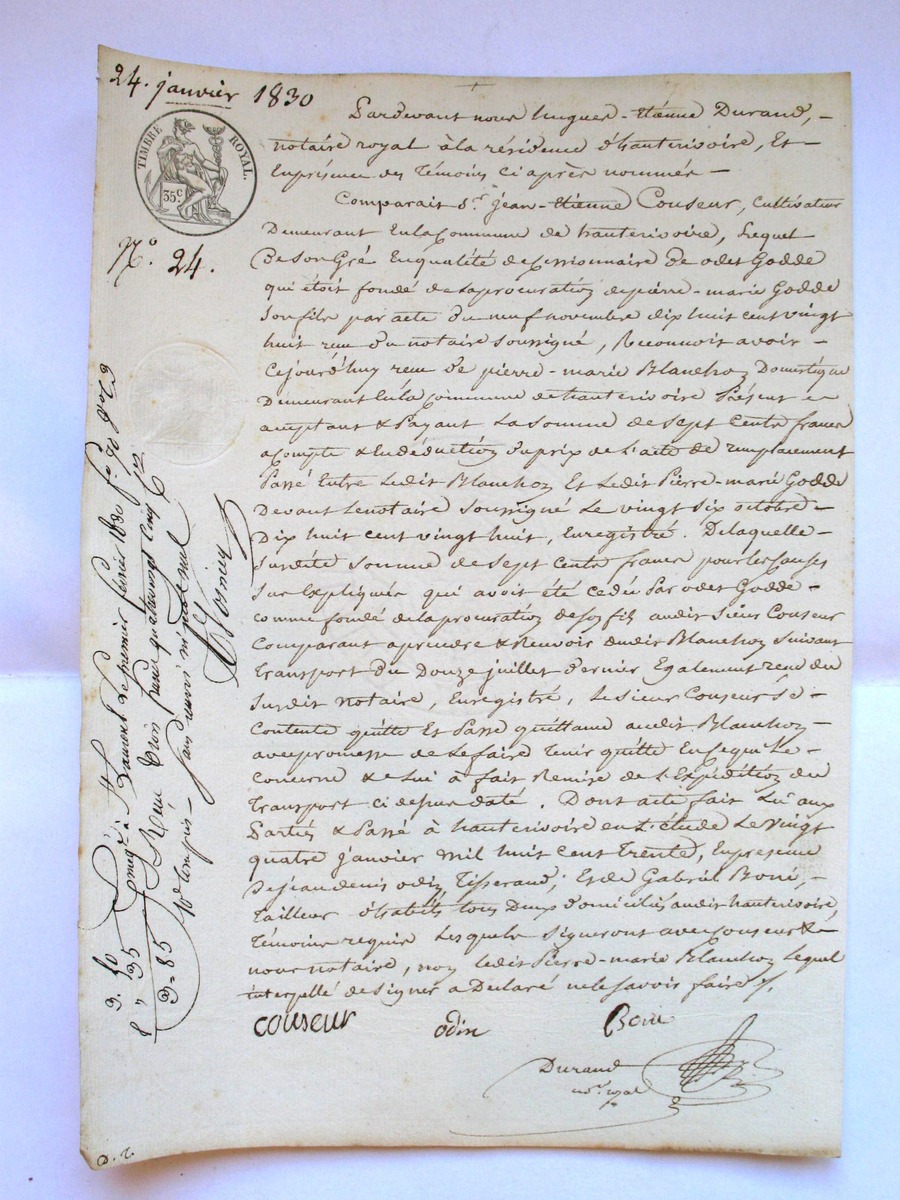 24. janvier 1830
TIMBRE ROYAL.
35 c
N.o 24.
Pardevant nous hugues-Etiénne Durand,
notaire royal à la résidence d'hauterivoire, Et
En présence des Témoins ci après nommés
Comparait S.r jean-Etiénne Couseur, Cultivateur
Demeurant En la Commune de hauterivoire, Lequel
De son Gré En qualité de Cessionnaire De odet Godde
qui étoit fondé de la procuration de pierre-marie Godde
son fils par acte du neuf novembre dix huit cent vingt
huit reçu du notaire soussigné, Reconnoit avoir
Cejourd'huy reçu de pierre-marie Blanchoz Domestique
Demeurant En la Commune de hauterivoire Présent
acceptant & Payant La somme de sept Cents francs
acompte & En déduction du prix de L'acte de remplacement
Passé Entre Ledit Blanchoz Et Ledit Pierre-marie Godde
Devant Le notaire soussigné Le vingt six octobre
Dix huit cent vingt huit, Enregistré. De laquelle
susdite somme de sept Cents francs pour les Causes
sus Expliquées qui avoit été cedée Par odet Godde
comme fondé de la procuration de son fils audit sieur Couseur
Comparant a prendre & recevoir dudit Blanchoz suivant
Transport du Douze juillet dernier Egalement reçu du
susdit notaire, Enregistré, Le sieur Couseur se
Contente quitte Et Passe quittance audit Blanchoz
avec promesse de Le faire Tenir quitte En ce qui Le
Concerne & Lui à fait Remise de L'Expédition du
Transport ci dessus daté. Dont acte fait Lu aux
Parties & Passé à hauterivoire en L'étude Le vingt
quatre janvier mil huit Cent Trente, En présence
De jean denis odin Tisserand, Et de Gabriel Boné,
Tailleur d'habits tous Deux domiciliés audit hauterivoire,
Témoins requis Lesquels signeront avec Couseur &
nous notaire, non Ledit Pierre-marie Blanchoz Lequel
interpellé de signer a Declaré ne le savoir faire
couseur odin Boné
Durand
not.re royal
Le premier février 1830
Reçu trois francs quatrevingt cinq c.es
D.e compris sans renvoi ni mot nul
3. 50
" 35
3 = 85
D. r.